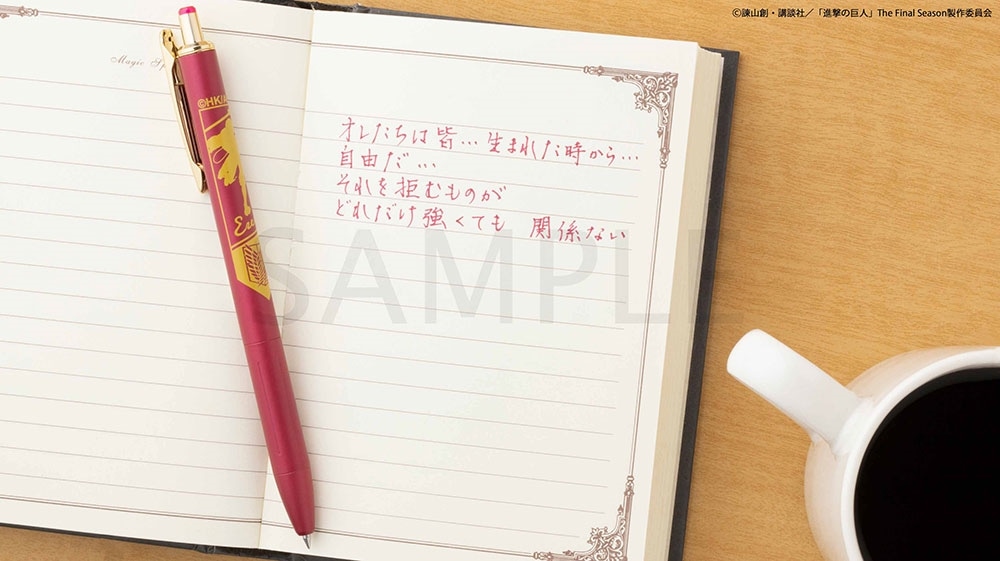 ©諫山創・講談社／「進撃の巨人」The Final Season製作委員会
オレたちは皆…生まれた時から…
自由だ…
それを拒むものが
どれだけ強くても 関係ない
SAMPLE
©HK/